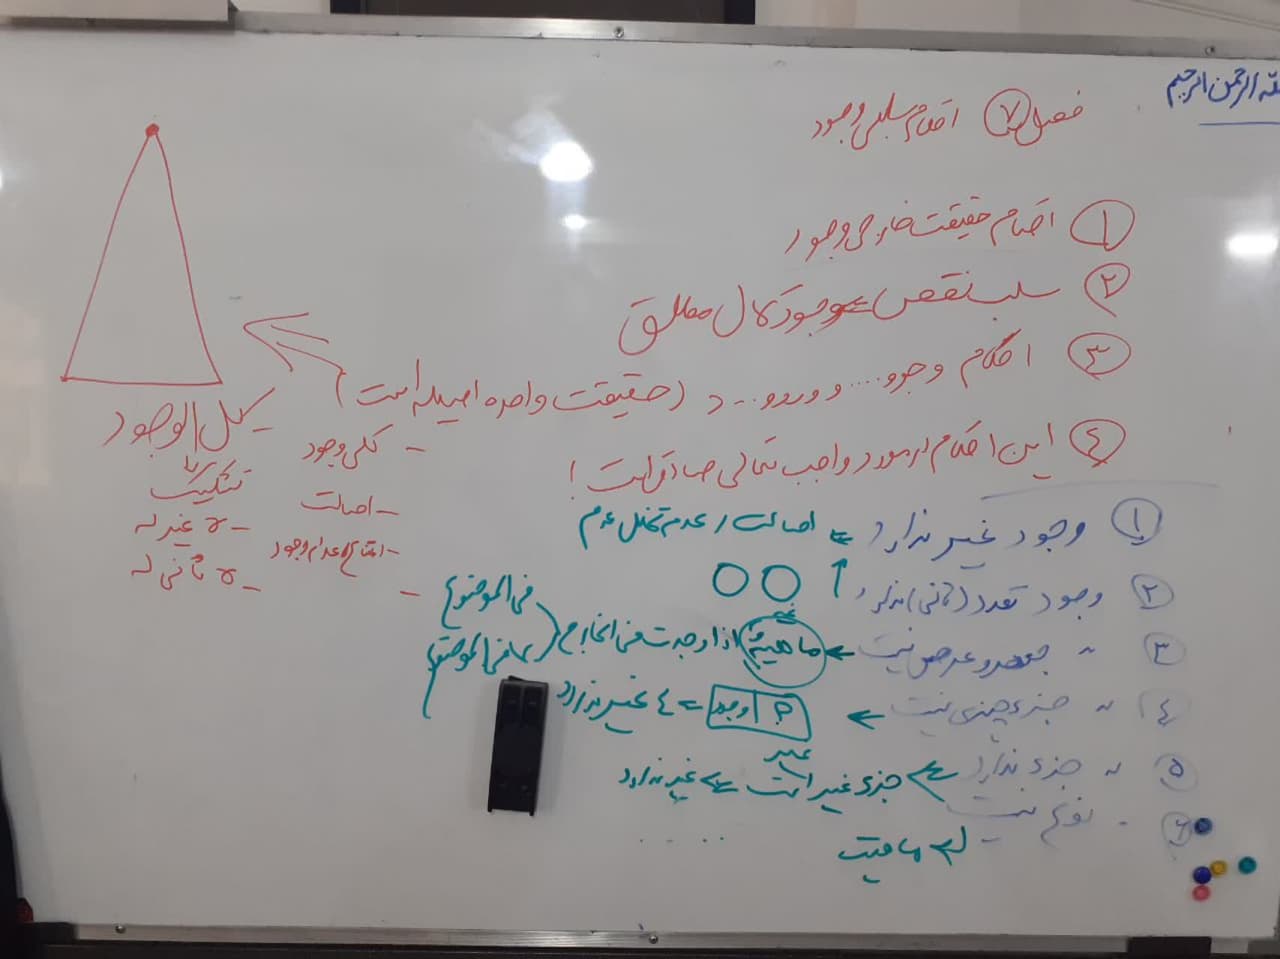 الله الرحمن الرحیم
فصل ۷ احکام سلبی وجود
۱ احکام حقیقت خارجی وجود
۲ سلب نقص = وجود کمال مطلق
۳ احکام وجود .... و وردو... د (حقیقت واحده اصیله است)
۴ این احکام در مورد واجب تعالی صادق است!
کل الوجود
تشکیک
- لا غیر له
- لا ثانی له
- کلی وجود
- اصالت
- امتناع عدم وجود
-
۱ وجود غیر ندارد ⇐ اصالت / عدم تخلل عدم
۲ وجود تعدد (ثانی) ندارد
۳ " جوهر و عرض نیست ← ماهیة اذا وجدت فی الخارج
غیر
فی الموضوع
لا فی الموضوع
۴ " جزء چیزی نیست ← ? وجود = ۴ غیر ندارد
۵ " جزء ندارد ⇐ جزء غیر است ⇐ غیر ندارد
غیر
۶ " نوع نیست
ماهیت
.....